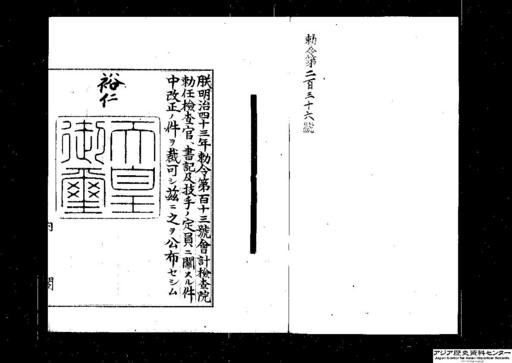 勅令第二百三十六號
朕明治四十三年勅令第百十三號會計檢査院
勅任檢查官、書記及技手ノ定員ニ關スル件
中改正ノ件ヲ裁可シ茲ニ之ヲ公布セシム
裕仁
天皇
御璽
内閣
アジア歴史資料センター
Japan Center for Asian Historical Records